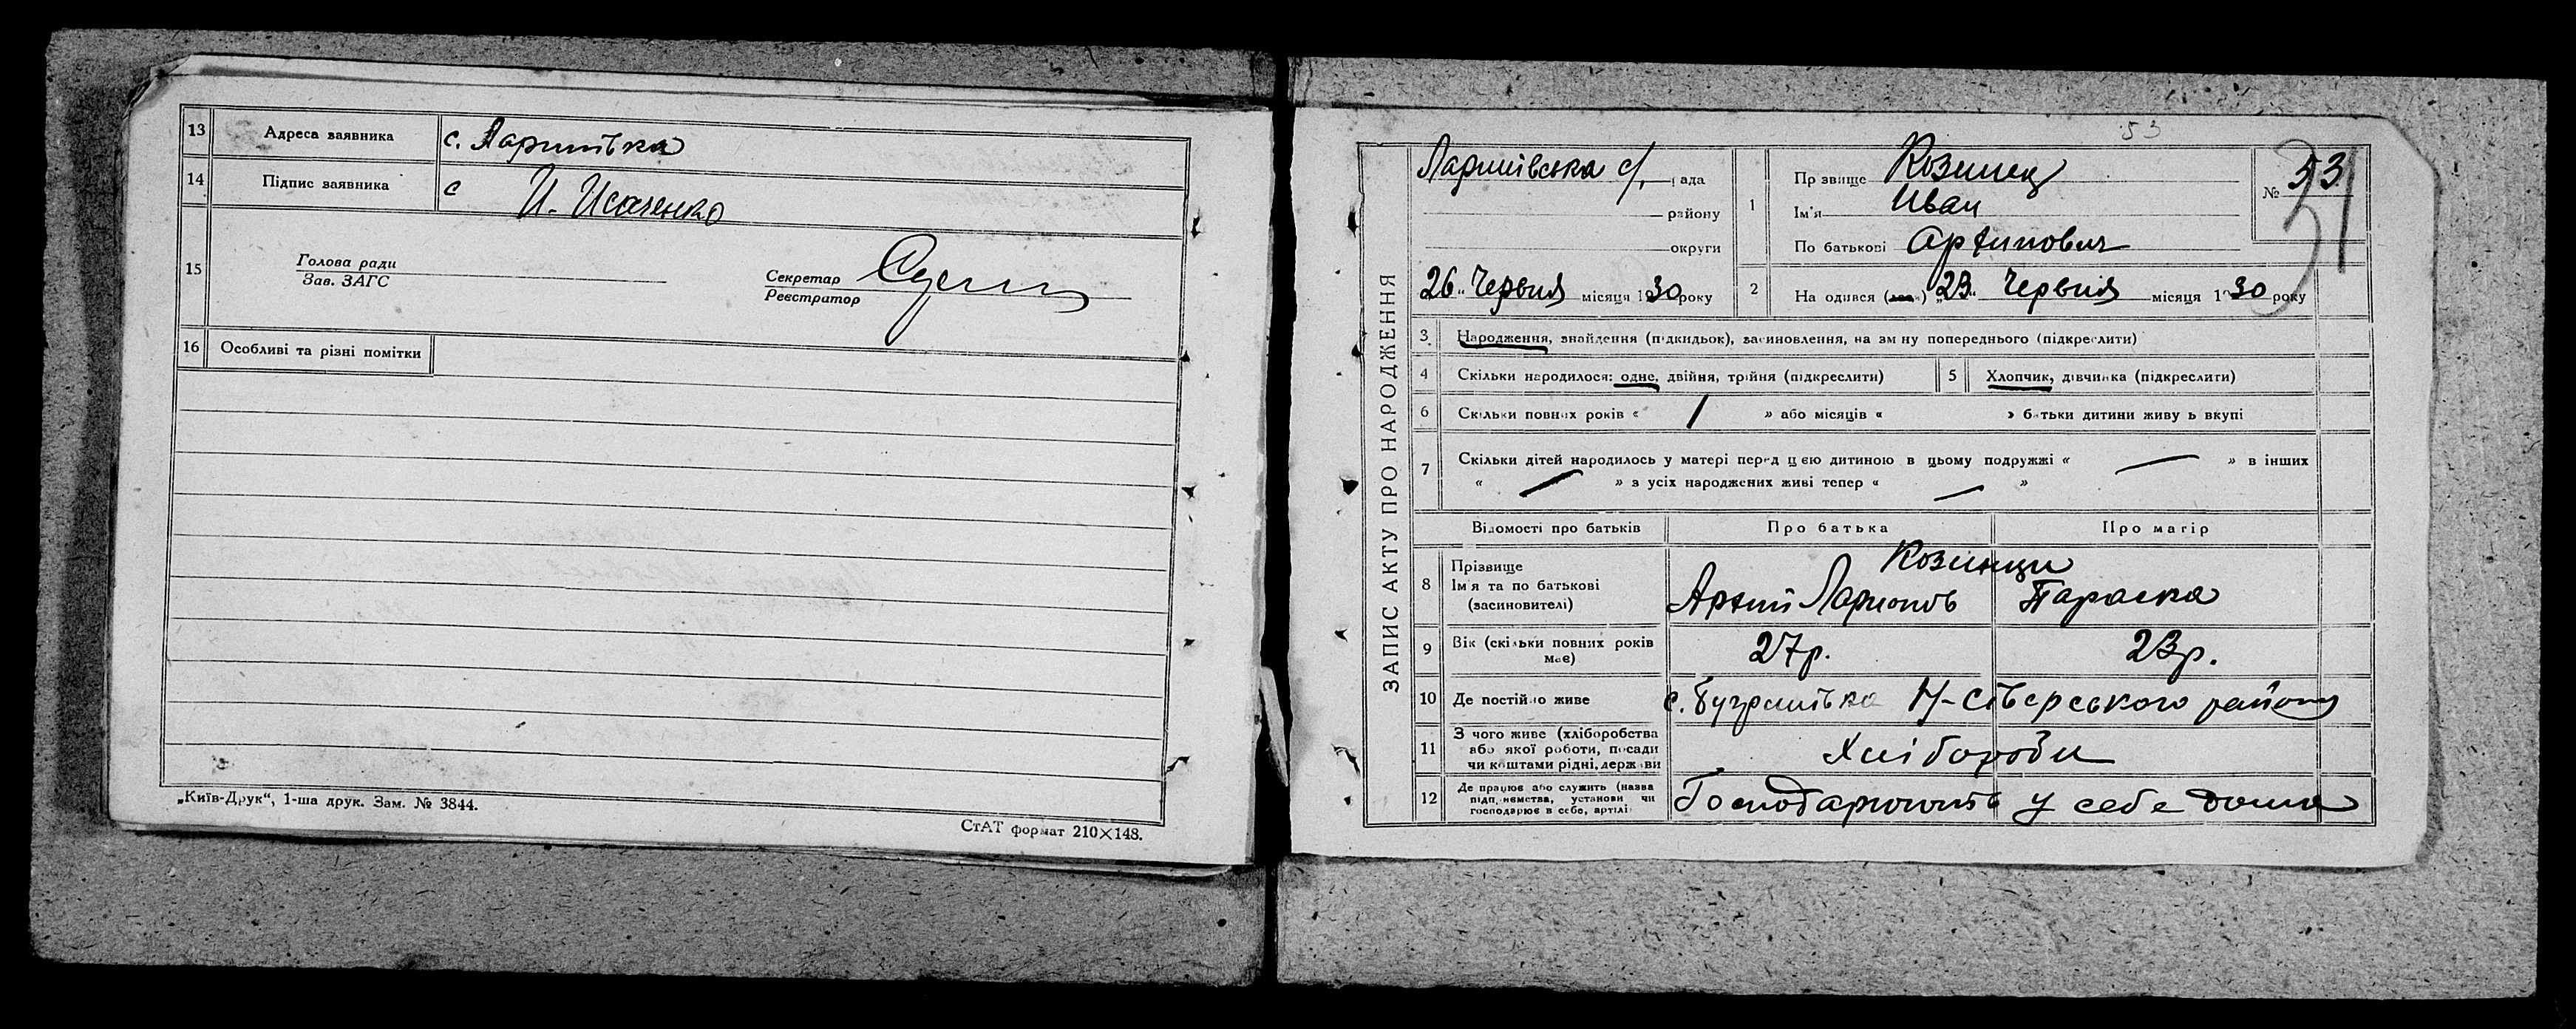 13 Адреса заявника с. Ларинівка
14 Підпис заявника с И. Исаченко
15 Голова ради
Зав. ЗАГС
Секретар
Реєстратор
16 Особливі та різні помітки
„Київ-Друк“, 1-ша друк. Зам. № 3844.
СтАТ формат 210×148.
53
ЗАПИС АКТУ ПРО НАРОДЖЕННЯ
Ларинівська с/рада
району
округи
26 „Червня місяця 1930 року
1 Прізвище Козинец
Ім'я Иван
По батькові Артипович
№ 53
2 Народився (лась) „23“ Червня місяця 1930 року
3 Народження, знайдення (підкидьок), засиновлення, на зміну попереднього (підкреслити)
4 Скільки народилося: одне, двійня, трійня (підкреслити)
5 Хлопчик, дівчинка (підкреслити)
6 Скільки повних років « / » або місяців « » батьки дитини живуть вкупі
7 Скільки дітей народилось у матері перед цією дитиною в цьому подружжі « — » в інших
« — » з усіх народжених живі тепер « — »
Відомості про батьків Про батька Про матір
8 Прізвище Козинци
Ім'я та по батькові
(засиновителі) Ларионов Параска
9 Вік (скільки повних років має) 27р. 23р.
10 Де постійно живе с. Бугринівка Н-Сіверського району
11 З чого живе (хліборобства
або якої роботи, посади
чи коштами рідні, держави Хлібороби
12 Де працює або служить (назва
підприємства, установи чи
господарює в себе, артілі Господарюють у себе дома